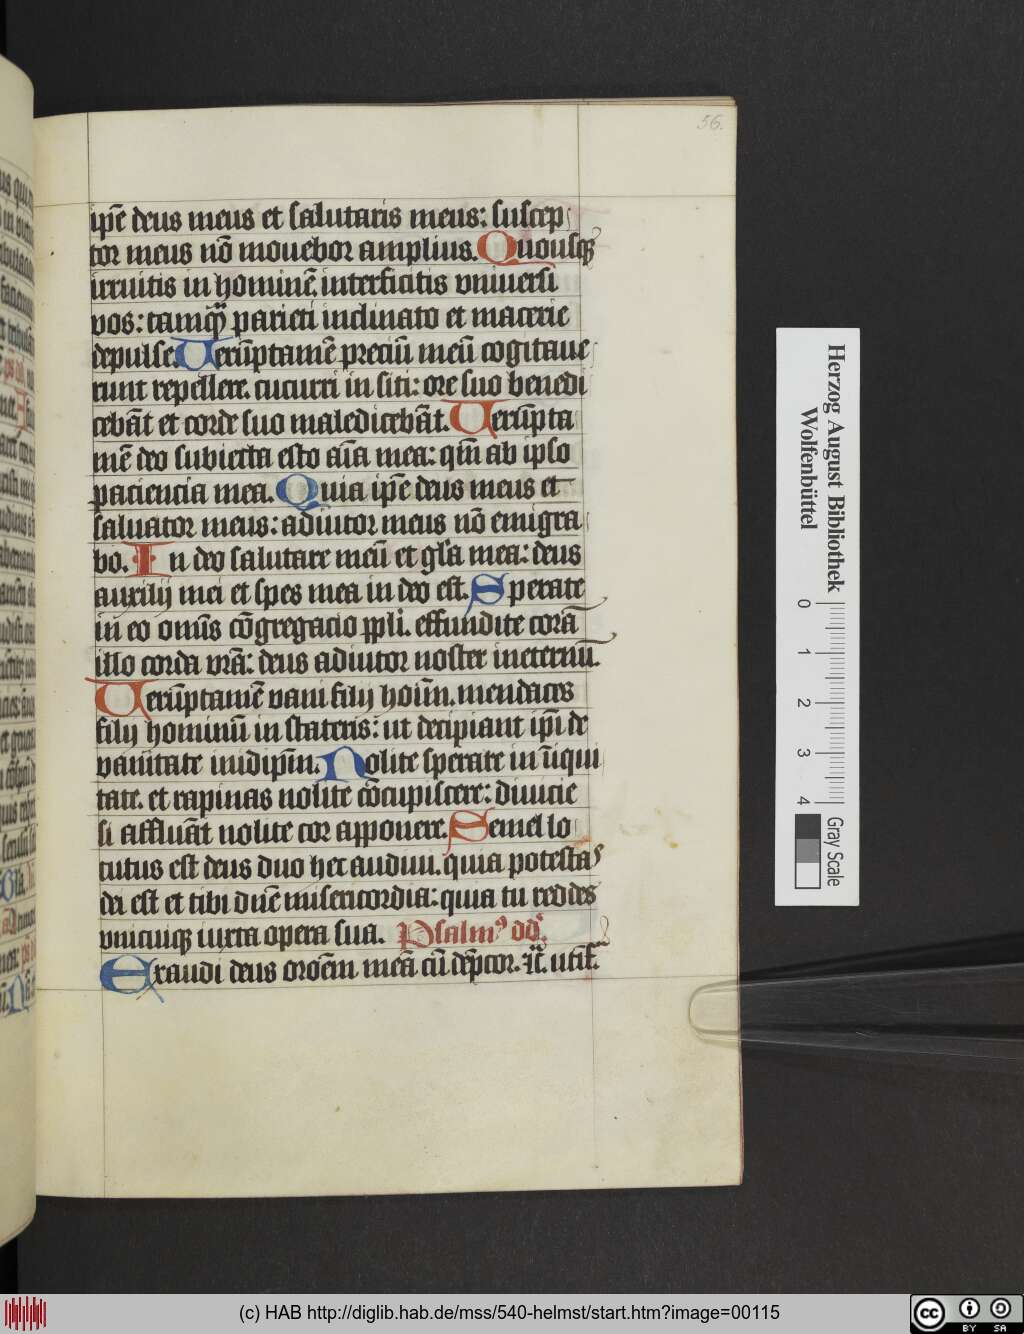 56.
ip̄e deus meus et salutaris meus: suscep
tor meus nō mouebor amplius. Quousq̄
irruitis in hominē, interficitis vniuersi
vos: tamq̄ parieti inclinato et macerie
depulse. Uerūptamē preciū meū cogitaue
runt repellere. cucurri in siti: ore suo benedi
cebāt et corde suo maledicebāt. Uerūpta
mē deo subiecta esto aīa mea: qm̄ ab ipso
paciencia mea. Quia ip̄e deus meus et
saluator meus: adiutor meus nō emigra
bo. In deo salutare meū et gl̄a mea: deus
auxilij mei et spes mea in deo est. Sperate
in eo omīs cōgregacio ppl̄i. effundite corā
illo corda vrā: deus adiutor noster ineternū.
Uerūptamē vani filij hoīm. mendaces
filij hominū in stateris: ut decipiant ip̄i de
vanitate inidip̄m. Nolite sperate in īiqui
tate. et rapinas nolite cōcupiscere: diuicie
si affluāt nolite cor apponere. Semel lo
cutus est deus duo hec audiui. quia potestas
dei est et tibi dn̄e misericordia: quia tu reddes
vnicuiq̄ iuxta opera sua. Psalm9 dd̄.
Exaudi deus oroēm meā cū dep̄cor.
Herzog August Bibliothek
Wolfenbüttel
0 1 2 3 4
Gray Scale
(c) HAB http://diglib.hab.de/mss/540-helmst/start.htm?image=00115
cc BY SA